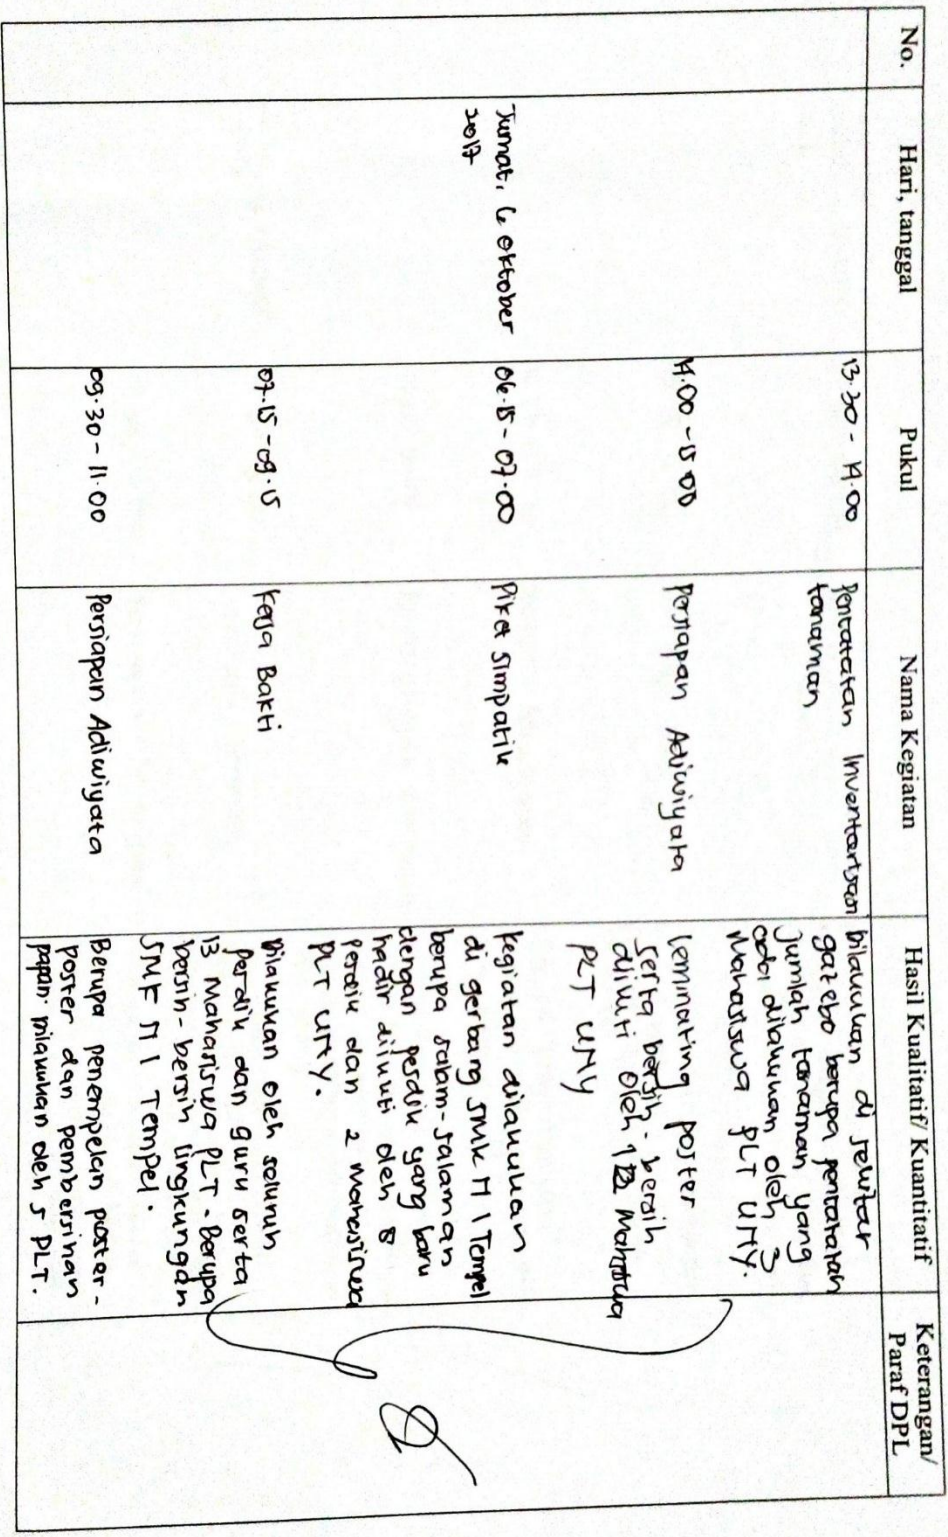 No.
Hari, tanggal
Pukul
Nama Kegiatan
Hasil Kualitatif/ Kuantitatif
Keterangan/
Paraf DPL
13.30 - 14.00
Pencatatan Inventarisasi
tanaman
Dilakukan di sekitar
gazebo berupa pencatatan
jumlah tanaman yang
ada dilakukan oleh 3
Mahasiswa PLT UNY.
14.00 - 15.00
Persiapan Adiwiyata
Leminating poster
serta bersih - bersih
diikuti oleh 12 Mahasiswa
PLT UNY
Jumat, 6 oktober
2017
06.15 - 07.00
Piket Simpatik
Kegiatan dilakukan
di gerbang SMK M 1 Tempel
berupa salam-salaman
dengan perdik yang baru
hadir diikuti oleh 8
perdik dan 2 Mahasiswa
PLT UNY.
07.15 - 09.15
Kerja Bakti
Dilakukan oleh seluruh
perdik dan guru serta
13 Mahasiswa PLT. Berupa
bersih- bersih lingkungan
SMK M 1 Tempel.
09.30 - 11.00
Persiapan Adiwiyata
Berupa penempelan poster-
poster dan pembersihan
papan. Dilakukan oleh 5 PLT.